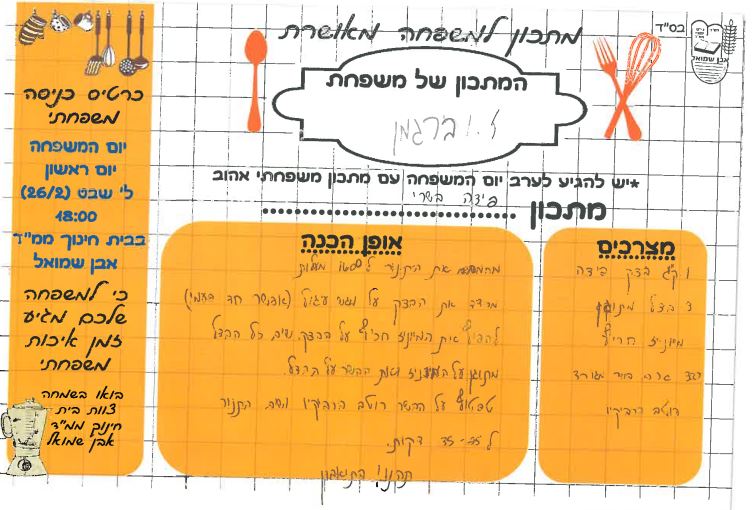 בס"ד
אבן שמואל
מתכון למשפחה מאושרת
המתכון של משפחת
ברגמן
*יש להגיע לערב יום המשפחה עם מתכון משפחתי אהוב
מתכון
פיצה בשרי
מצרכים
1 ק"ג בצק פיצה
3 בצל מטוגן
מיונז חריף
גרם בשר
רוטב ברביקיו
אופן הכנה
את התנור ל מעלות
את הבצק על מגש עגול (אפשר חד פעמי)
את המיונז חריף על הבצק, שים כל הבצל
מטוגן על המיונז ואת הבשר על הבצל.
על הבשר רוטב ברביקיו ושים בתנור
ל 25-35 דקות.
התיאבון
כרטיס כניסה
משפחתי
יום המשפחה
יום ראשון
ל' שבט (26/2)
18:00
בבית חינוך ממ"ד
אבן שמואל
כי למשפחה
שלכם מגיע
זמן איכות
משפחתי
בואו בשמחה
צוות בית
חינוך ממ"ד
אבן שמואל